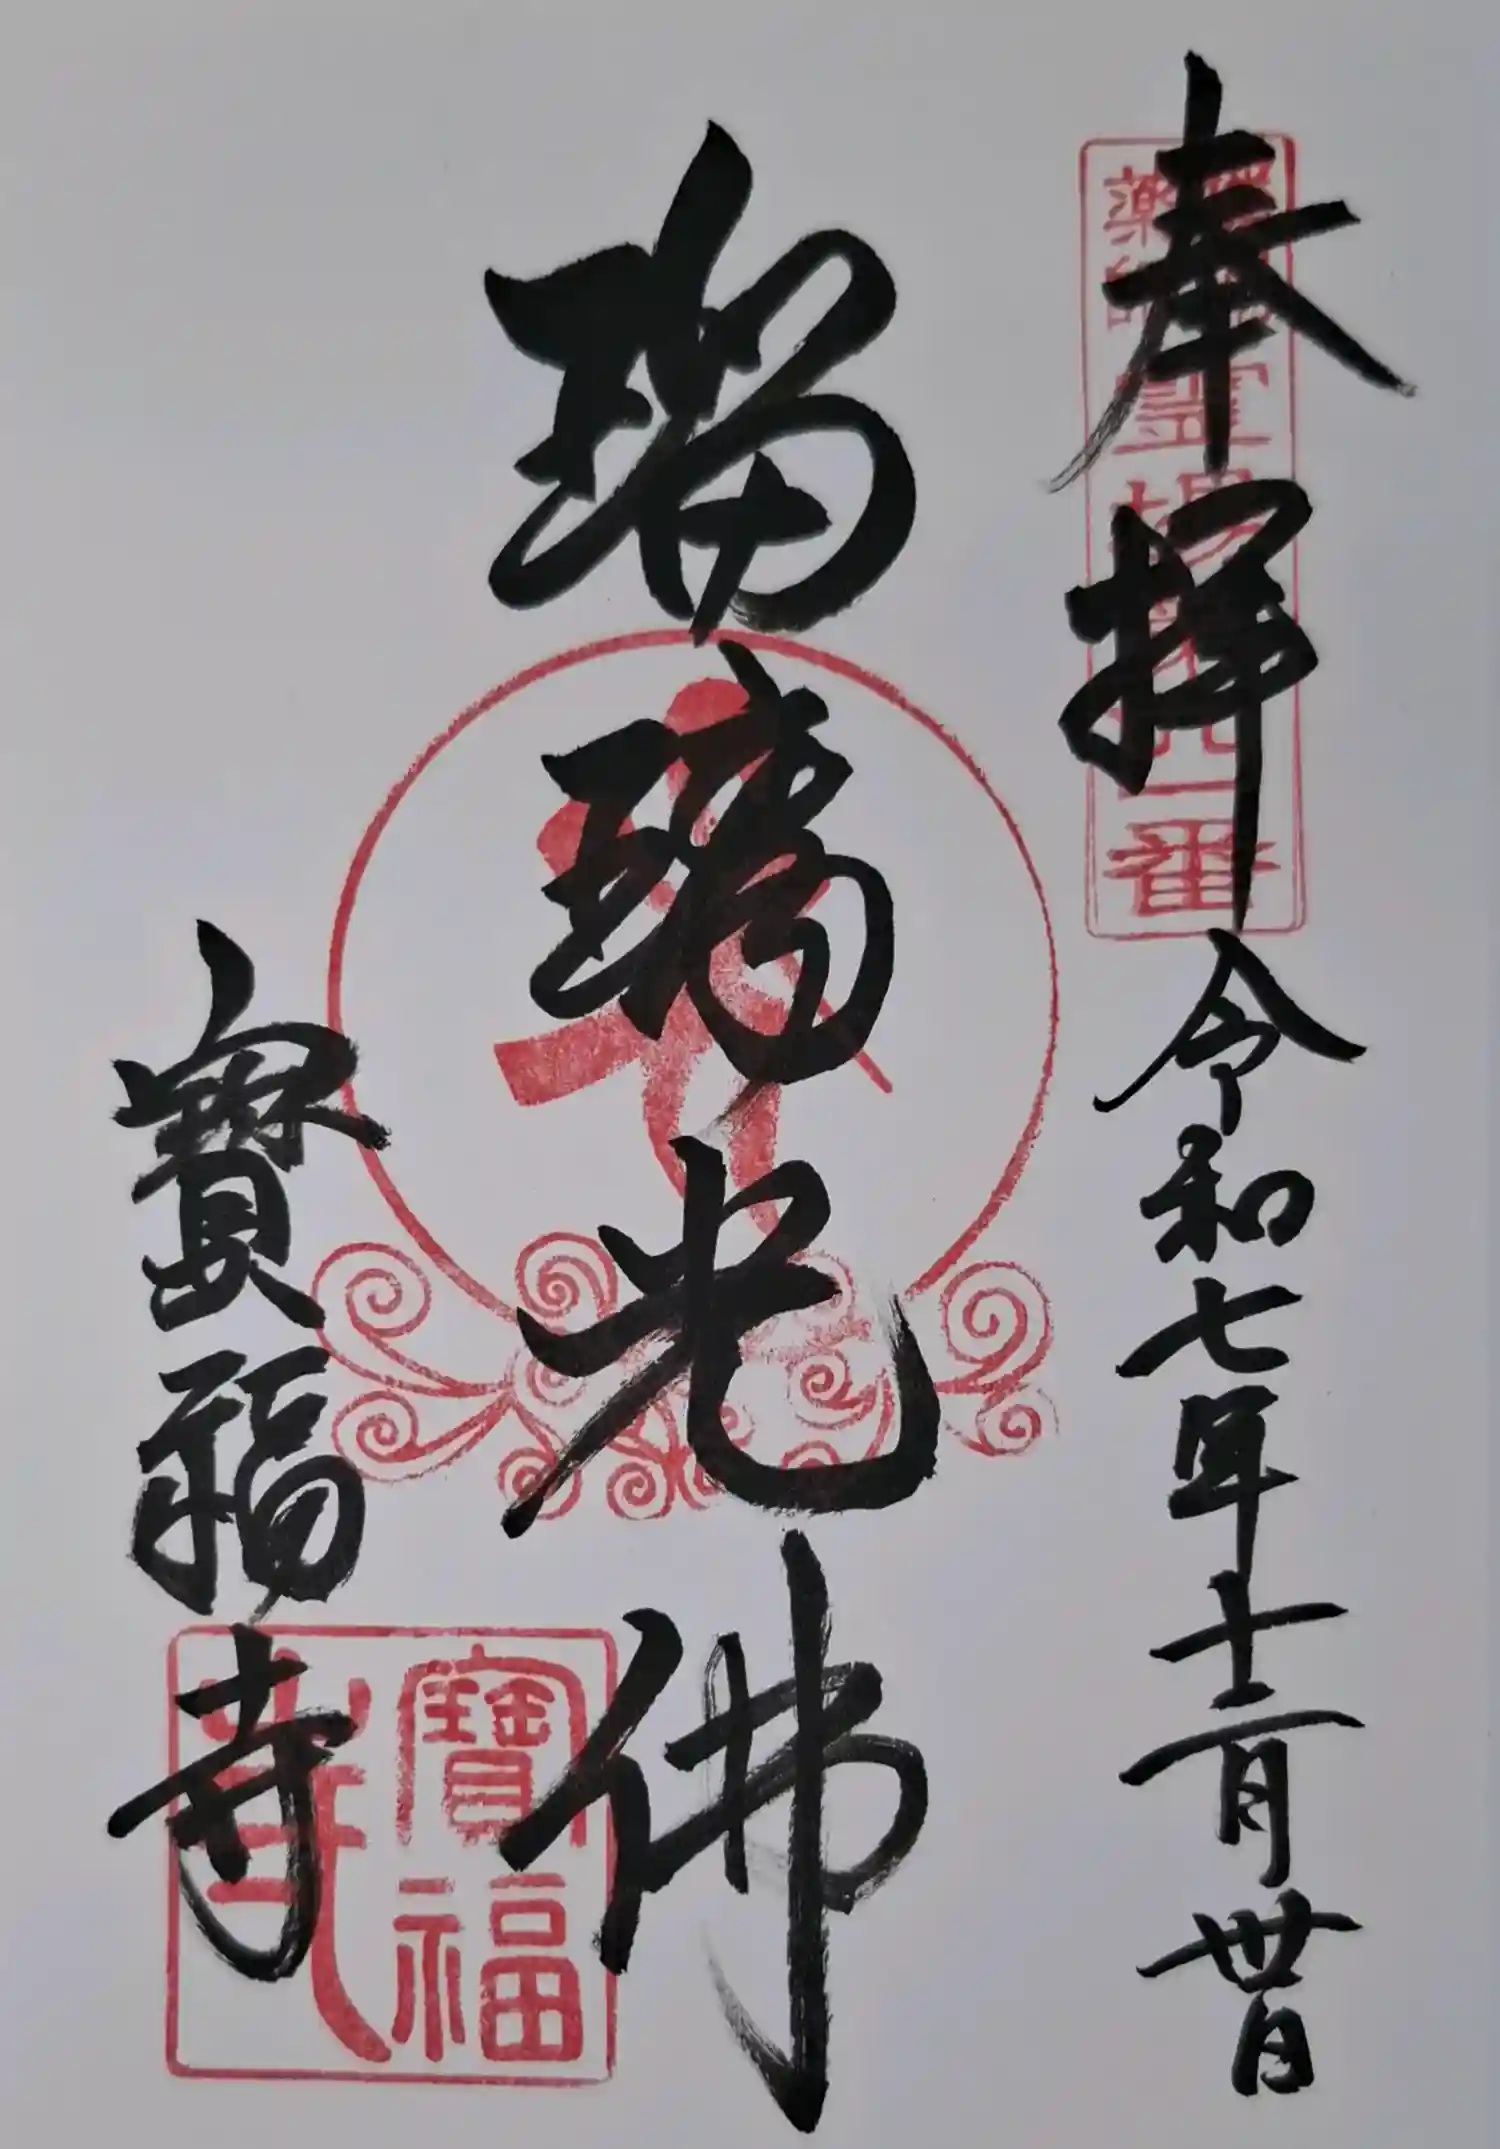 奉拝 令和七年十二月卅日
薬師
霊場
番
瑠璃光佛
寶福寺
寶福
寺